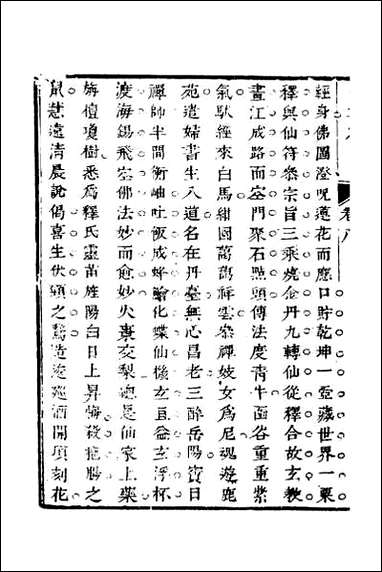 經身佛圖澄呪蓮花而應口貯乾坤一壺藏世界一粟
釋與仙符宗旨三乘燒金丹九轉仙從釋合故玄教
畫江成路而空門聚石點頭傳法度青牛函谷重重紫
氣馱經來白馬紺園藹藹祥雲參禪妓女爲尼魂遊鹿
苑道婦書生入道名在丹臺無心昌老三醉岳陽賓日
禪師半間衡岫吐飯成蜂噓化蝶仙機玄且益玄浮杯
渡海錫飛空佛法妙而愈妙火棗交梨總是仙家上藥
旃檀瓊樹悉爲釋氏靈苗旌陽白日上昇悔殺拖腸之
鼠慧遠清晨說偈喜生伏頷之鷲造逡巡酒開頃刻花
卷八